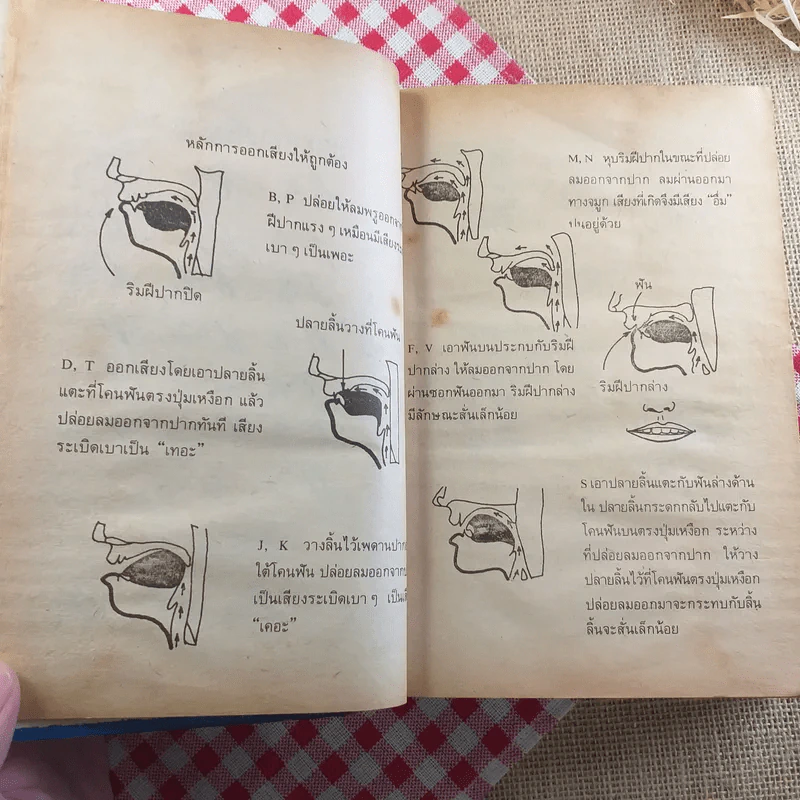 หลักการออกเสียงให้ถูกต้อง
B, P ปล่อยให้ลมพรูออกจาก
ฝีปากแรง ๆ เหมือนมีเสียง
เบา ๆ เป็นเพอะ
ริมฝีปากปิด
ปลายลิ้นวางที่โคนฟัน
D, T ออกเสียงโดยเอาปลายลิ้น
แตะที่โคนฟันตรงปุ่มเหงือก แล้ว
ปล่อยลมออกจากปากทันที เสียง
ระเบิดเบาเป็น “เทอะ”
J, K วางลิ้นไว้เพดานปาก
ใต้โคนฟัน ปล่อยลมออกจาก
เป็นเสียงระเบิดเบา ๆ
“เคอะ”
M, N หุบริมฝีปากในขณะที่ปล่อย
ลมออกจากปาก ลมผ่านออกมา
ทางจมูก เสียงที่เกิดจึงมีเสียง “อึ่ม”
ปนอยู่ด้วย
ฟัน
F, V เอาฟันบนประกบกับริมฝี
ปากล่าง ให้ลมออกจากปาก โดย
ผ่านซอกฟันออกมา ริมฝีปากล่าง
มีลักษณะสั่นเล็กน้อย
ริมฝีปากล่าง
S เอาปลายลิ้นแตะกับฟันล่างด้าน
ใน ปลายลิ้นกระดกกลับไปแตะกับ
โคนฟันบนตรงปุ่มเหงือก ระหว่าง
ที่ปล่อยลมออกจากปาก ให้วาง
ปลายลิ้นไว้ที่โคนฟันตรงปุ่มเหงือก
ปล่อยลมออกมาจะกระทบกับลิ้น
ลิ้นจะสั่นเล็กน้อย